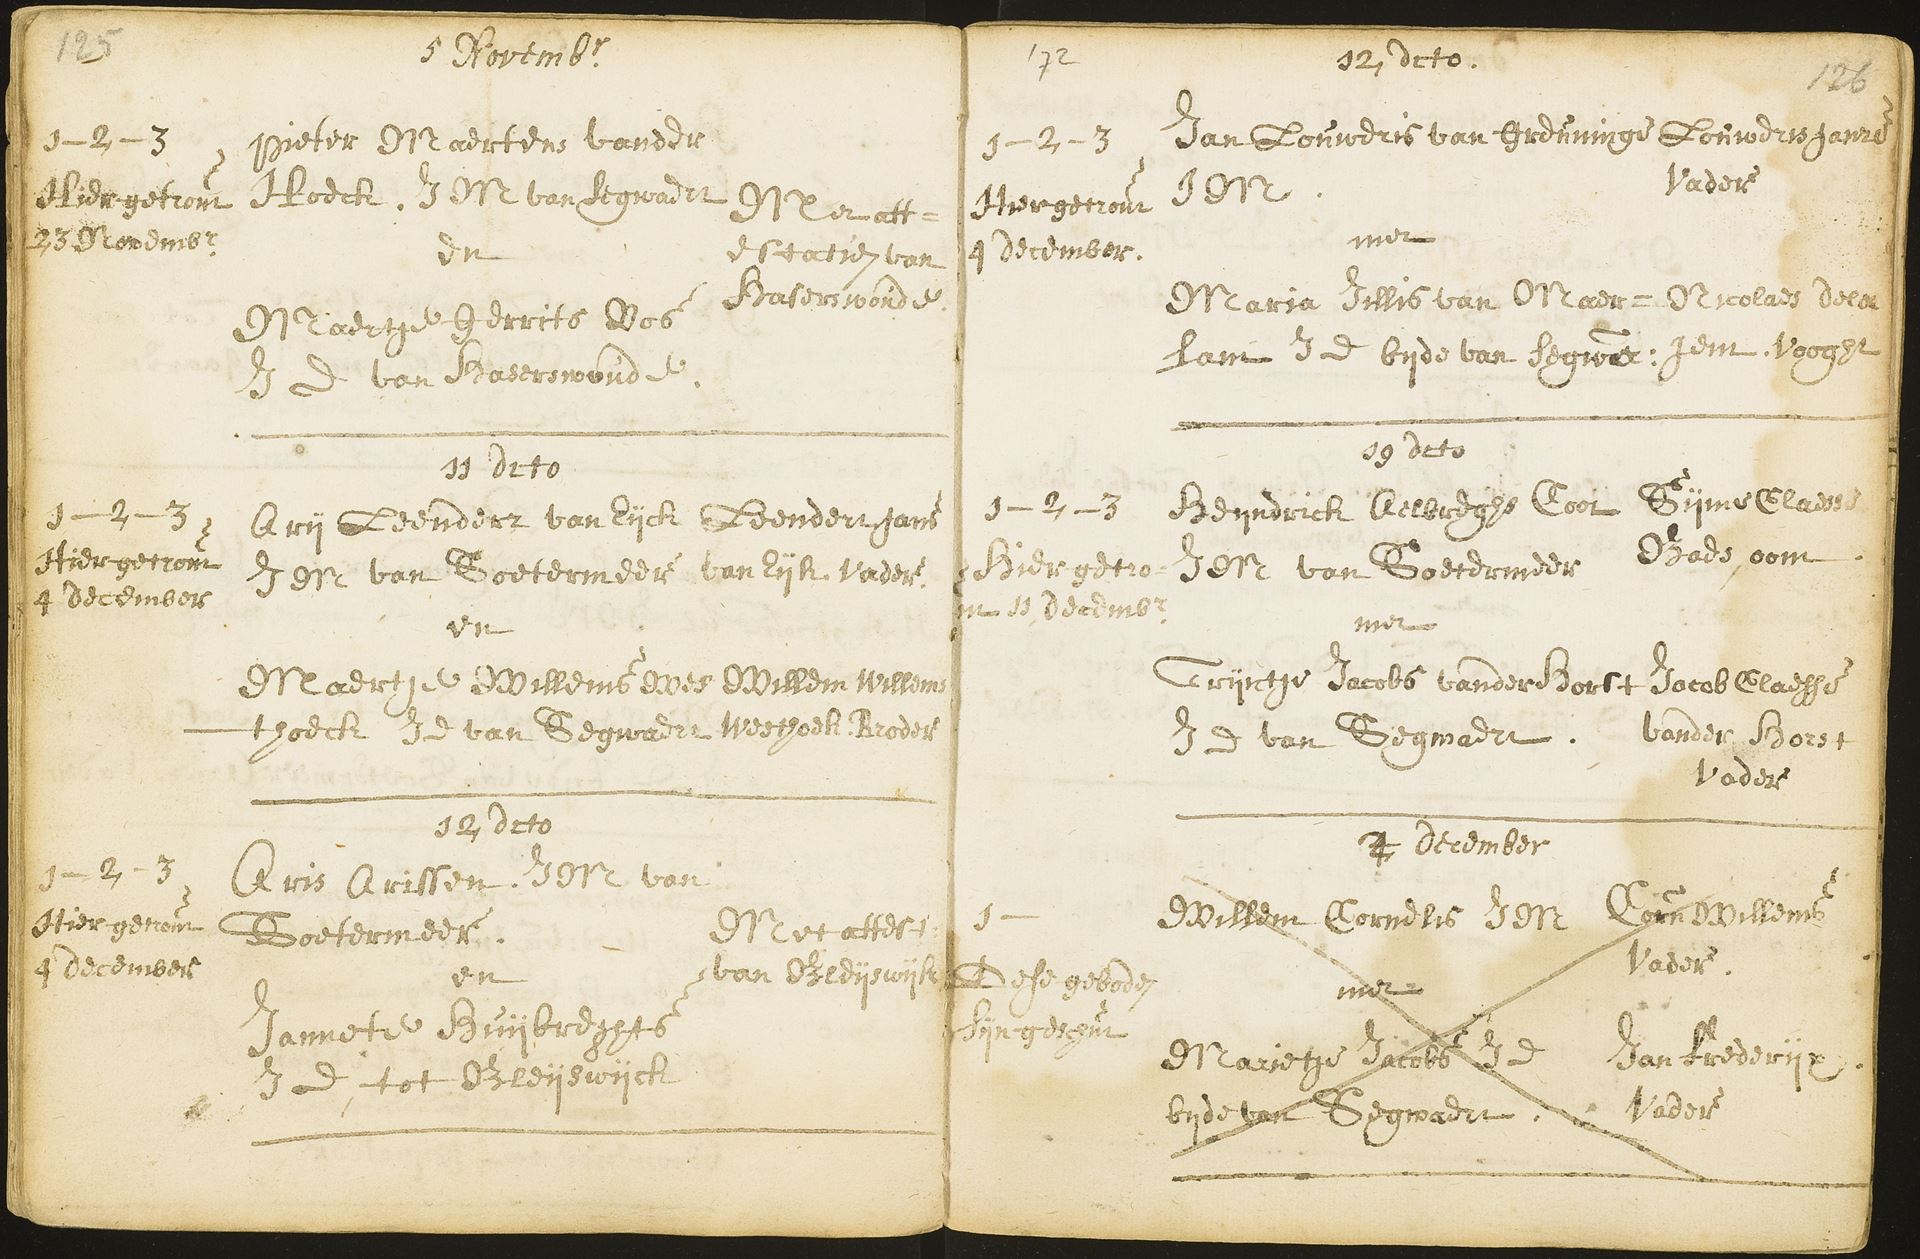 125
5 Novembr.
1-2-3
Hier getrout
23 Novembr.
Pieter Maertens vander
Hoeck. JM van Segwaert
en
Maertje Gerrits Vos
J D van Haserswoude.
Met att=
estatie van
Haserswoude.
11 dcto
1-2-3
Hier getrout
4 December
Arij Leendert van Eijck
JM van Soetermeer
en
Maertje Willems Wes
thoeck JD van Segwaert
Leendert Jans
van Eijk Vader.
Willem Willems
Westhoek. Broder
12 dcto
1-2-3
Hier getrout
4 December
Aris Arissen. JM van
Soetermeer.
en
Jannetje Huijbreghts
J D tot Bleijswijck
Met attest.
van Bleijswijk
172
12, dcto.
126
1-2-3
Hier getrout
4 December.
Jan Louweris van
JM.
met
Maria Jillis van Maer=
lant J D beijde van Segwaer:
Louweris Janse
Vader
Nicolaes dela
Vooght
19 dcto
1-2-3
Hier getro=
ut 11 Decembr.
Heijndrick Aelbreghs Coot
JM van Soetermeer
met
Trijntje Jacobs vander Horst
J D van Segwaert.
Sijme Claesse
oom.
Jacob Claesse
vander Horst
Vader
4 December
1-
Dese geboden
sijn geschut
Willem Cornelis JM
met
Marietje Jacobs J D
beijde van Segwaert.
Corn Willems
Vader.
Jan Frederijx.
Vader